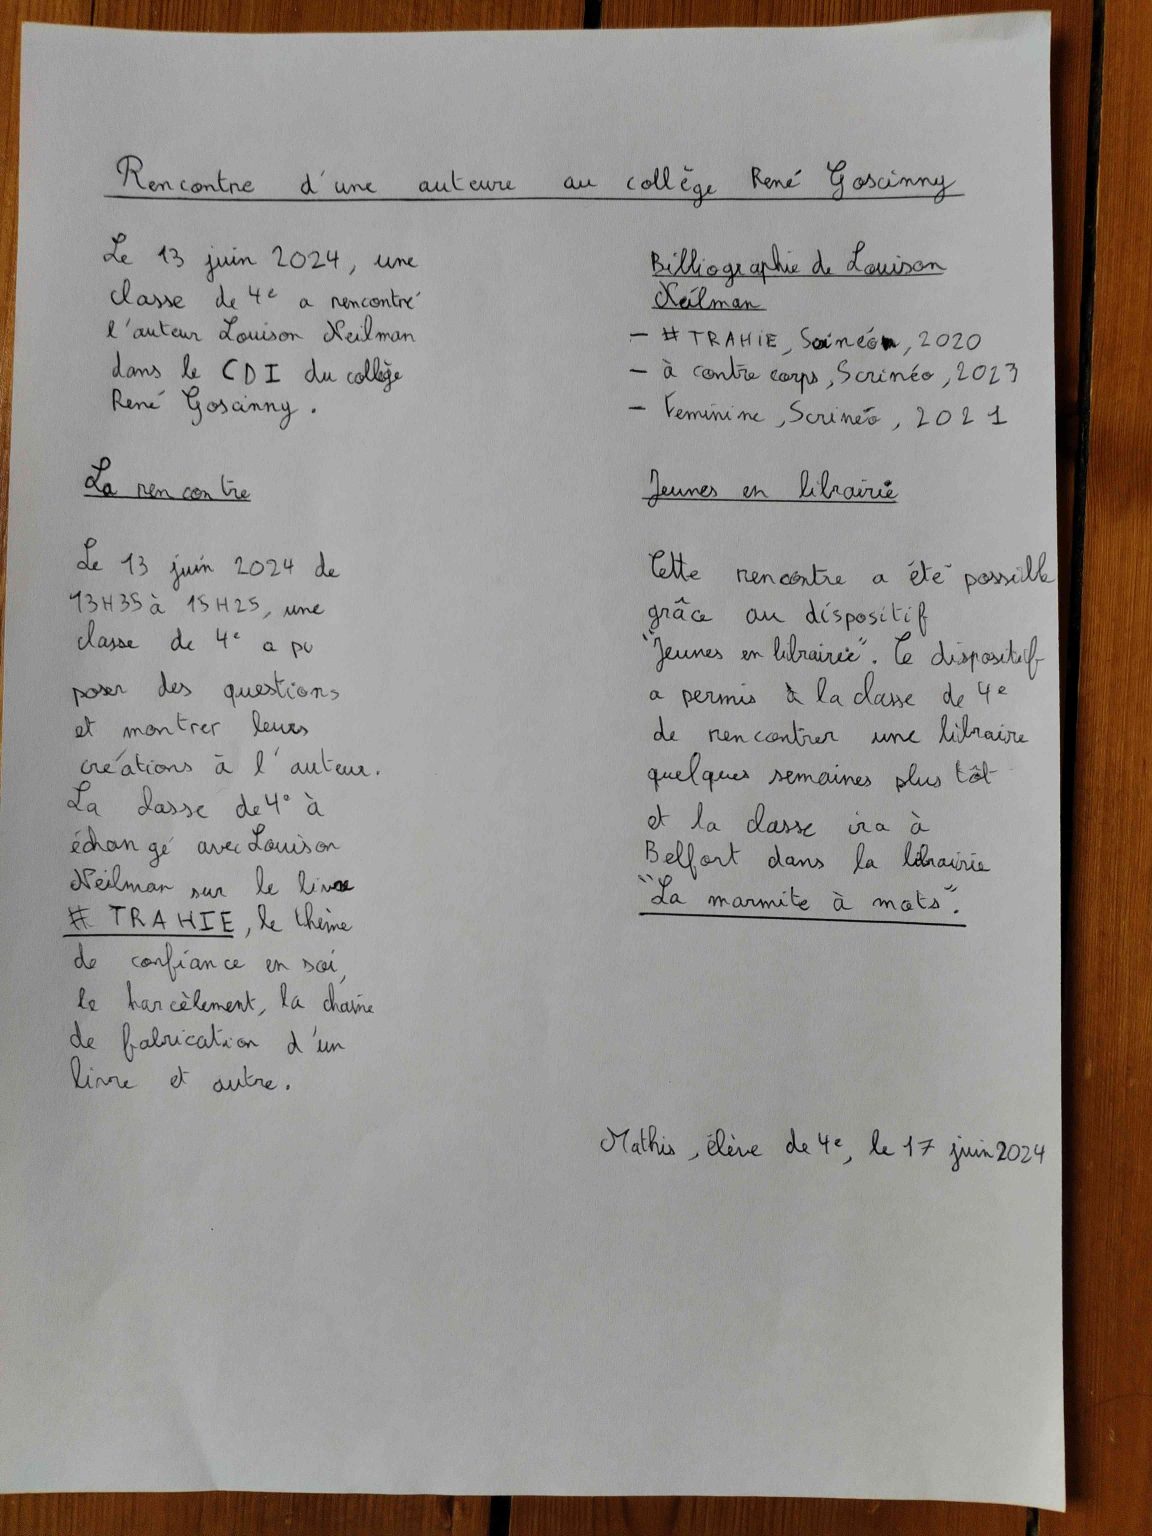 Rencontre d'une auteure au collège René Goscinny
Le 13 juin 2024, une
classe de 4e a rencontré
l'auteur Louison Neilman
dans le CDI du collège
René Goscinny.
La rencontre
Le 13 juin 2024 de
13H35 à 15H25, une
classe de 4e a pu
poser des questions
et montrer leurs
créations à l'auteur.
La classe de 4e à
échangé avec Louison
Neilman sur le livre
# TRAHIE, le thème
de confiance en soi,
le harcèlement, la chaîne
de fabrication d'un
livre et autre.
Bibliographie de Louison
Neilman
- # TRAHIE, Scrinéo, 2020
- à contre corps, Scrinéo, 2023
- Feminine, Scrinéo, 2021
Jeunes en librairie
Cette rencontre a été possible
grâce au dispositif
"Jeunes en librairie". Ce dispositif
a permis à la classe de 4e
de rencontrer une libraire
quelques semaines plus tôt
et la classe ira à
Belfort dans la librairie
"La marmite à mots".
Mathis, élève de 4e, le 17 juin 2024